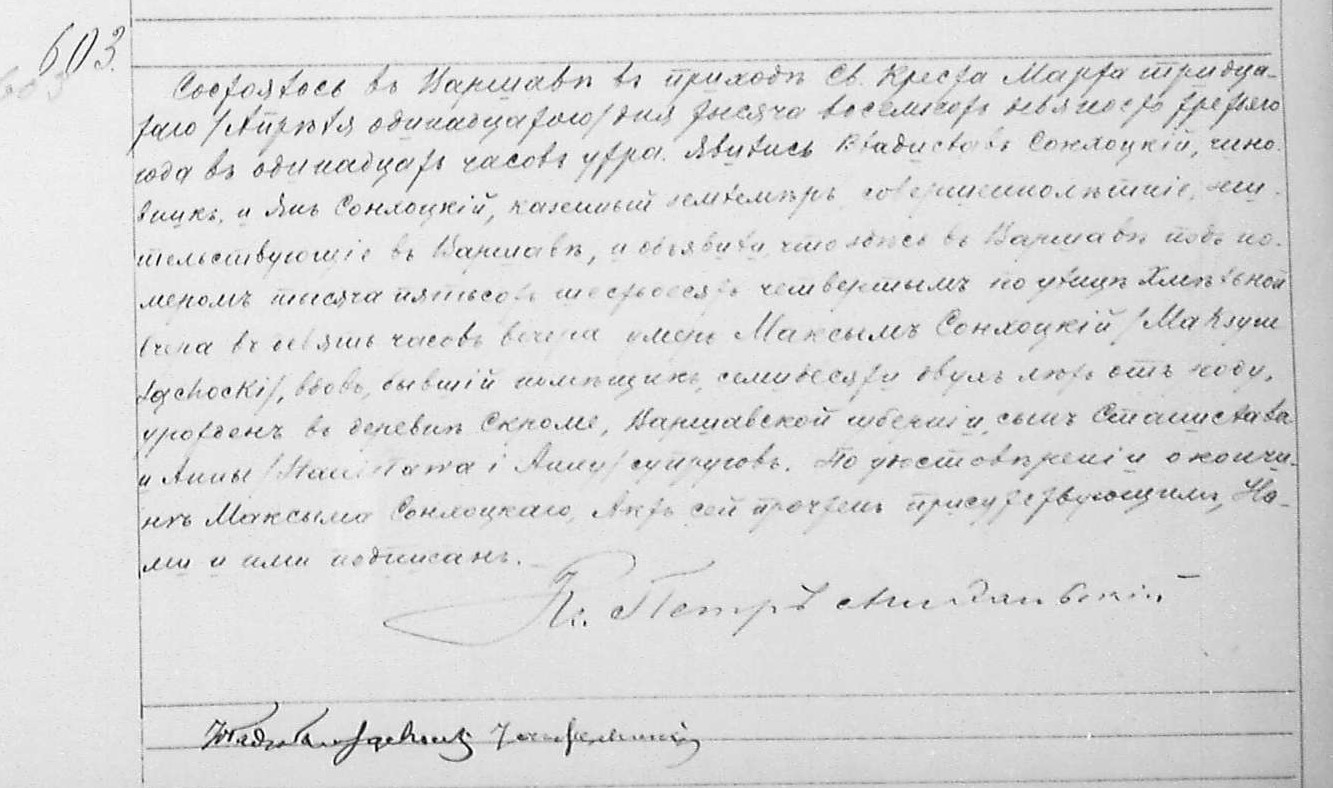 603.
603
Состоялось въ Варшавѣ въ приходѣ Св. Креста Марта тридца-
таго /Апрѣля одинадцатого/ дня тысяча восемьсотъ девяносто третьяго
года въ одинадцать часовъ утра. Явились Владиславъ Сонхоцкій, чино-
вникъ, и Янъ Сонхоцкій, казенный землемѣръ, совершеннолѣтніе, жи-
тельствующіе въ Варшавѣ, и объявили, что здѣсь въ Варшавѣ подъ но-
меромъ тысяча пятьсотъ шестьдесятъ четвертымъ по улицѣ Хмѣльной
вчера въ девять часовъ вечера умеръ Максымъ Сонхоцкій /Maksym
Sąchocki/, вдовъ, бывшій помѣщикъ, семидесяти двухъ лѣтъ отъ роду,
урожденъ въ деревнѣ Скроме, Варшавской губерніи, сынъ Станислава
и Анны /Stanisława i Anny/ супруговъ. По удостовѣреніи о кончи-
нѣ Максыма Сонхоцкаго, Актъ сей прочтенъ присутствующимъ, На-
ми и ими подписанъ.
Кс. Петръ
Władysław Sąchocki Jan Sąchocki